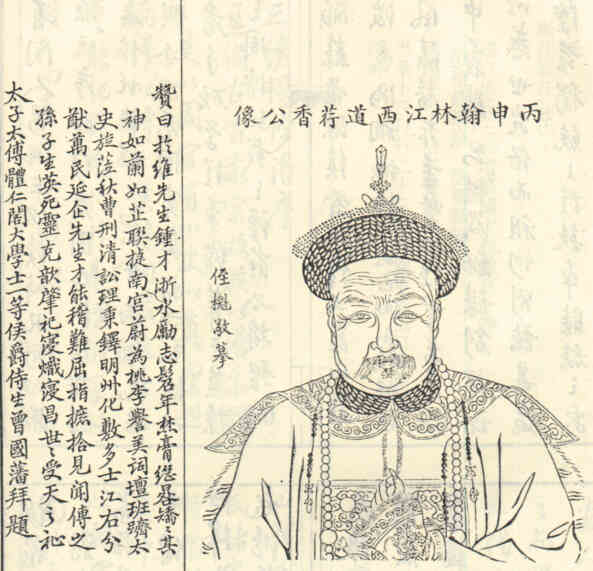 丙申翰林江西道荐香公像
侄敬摹
贊曰於維先生鍾才浙水勵志髫年焚膏繼晷矯〻其
神如蘭如芷聯捷南宮蔚為桃李譽美詞壇班躋太
史旋蒞秋曹刑清訟理秉鐸明州化敷多士江右分
猷萬民延企先生才能稽難屈指摭拾見聞傳之
孫子生英死靈克歆肇祀寖熾寖昌世〻受天之祉
太子太傅體仁閣大學士一等侯爵侍生曾國藩拜題